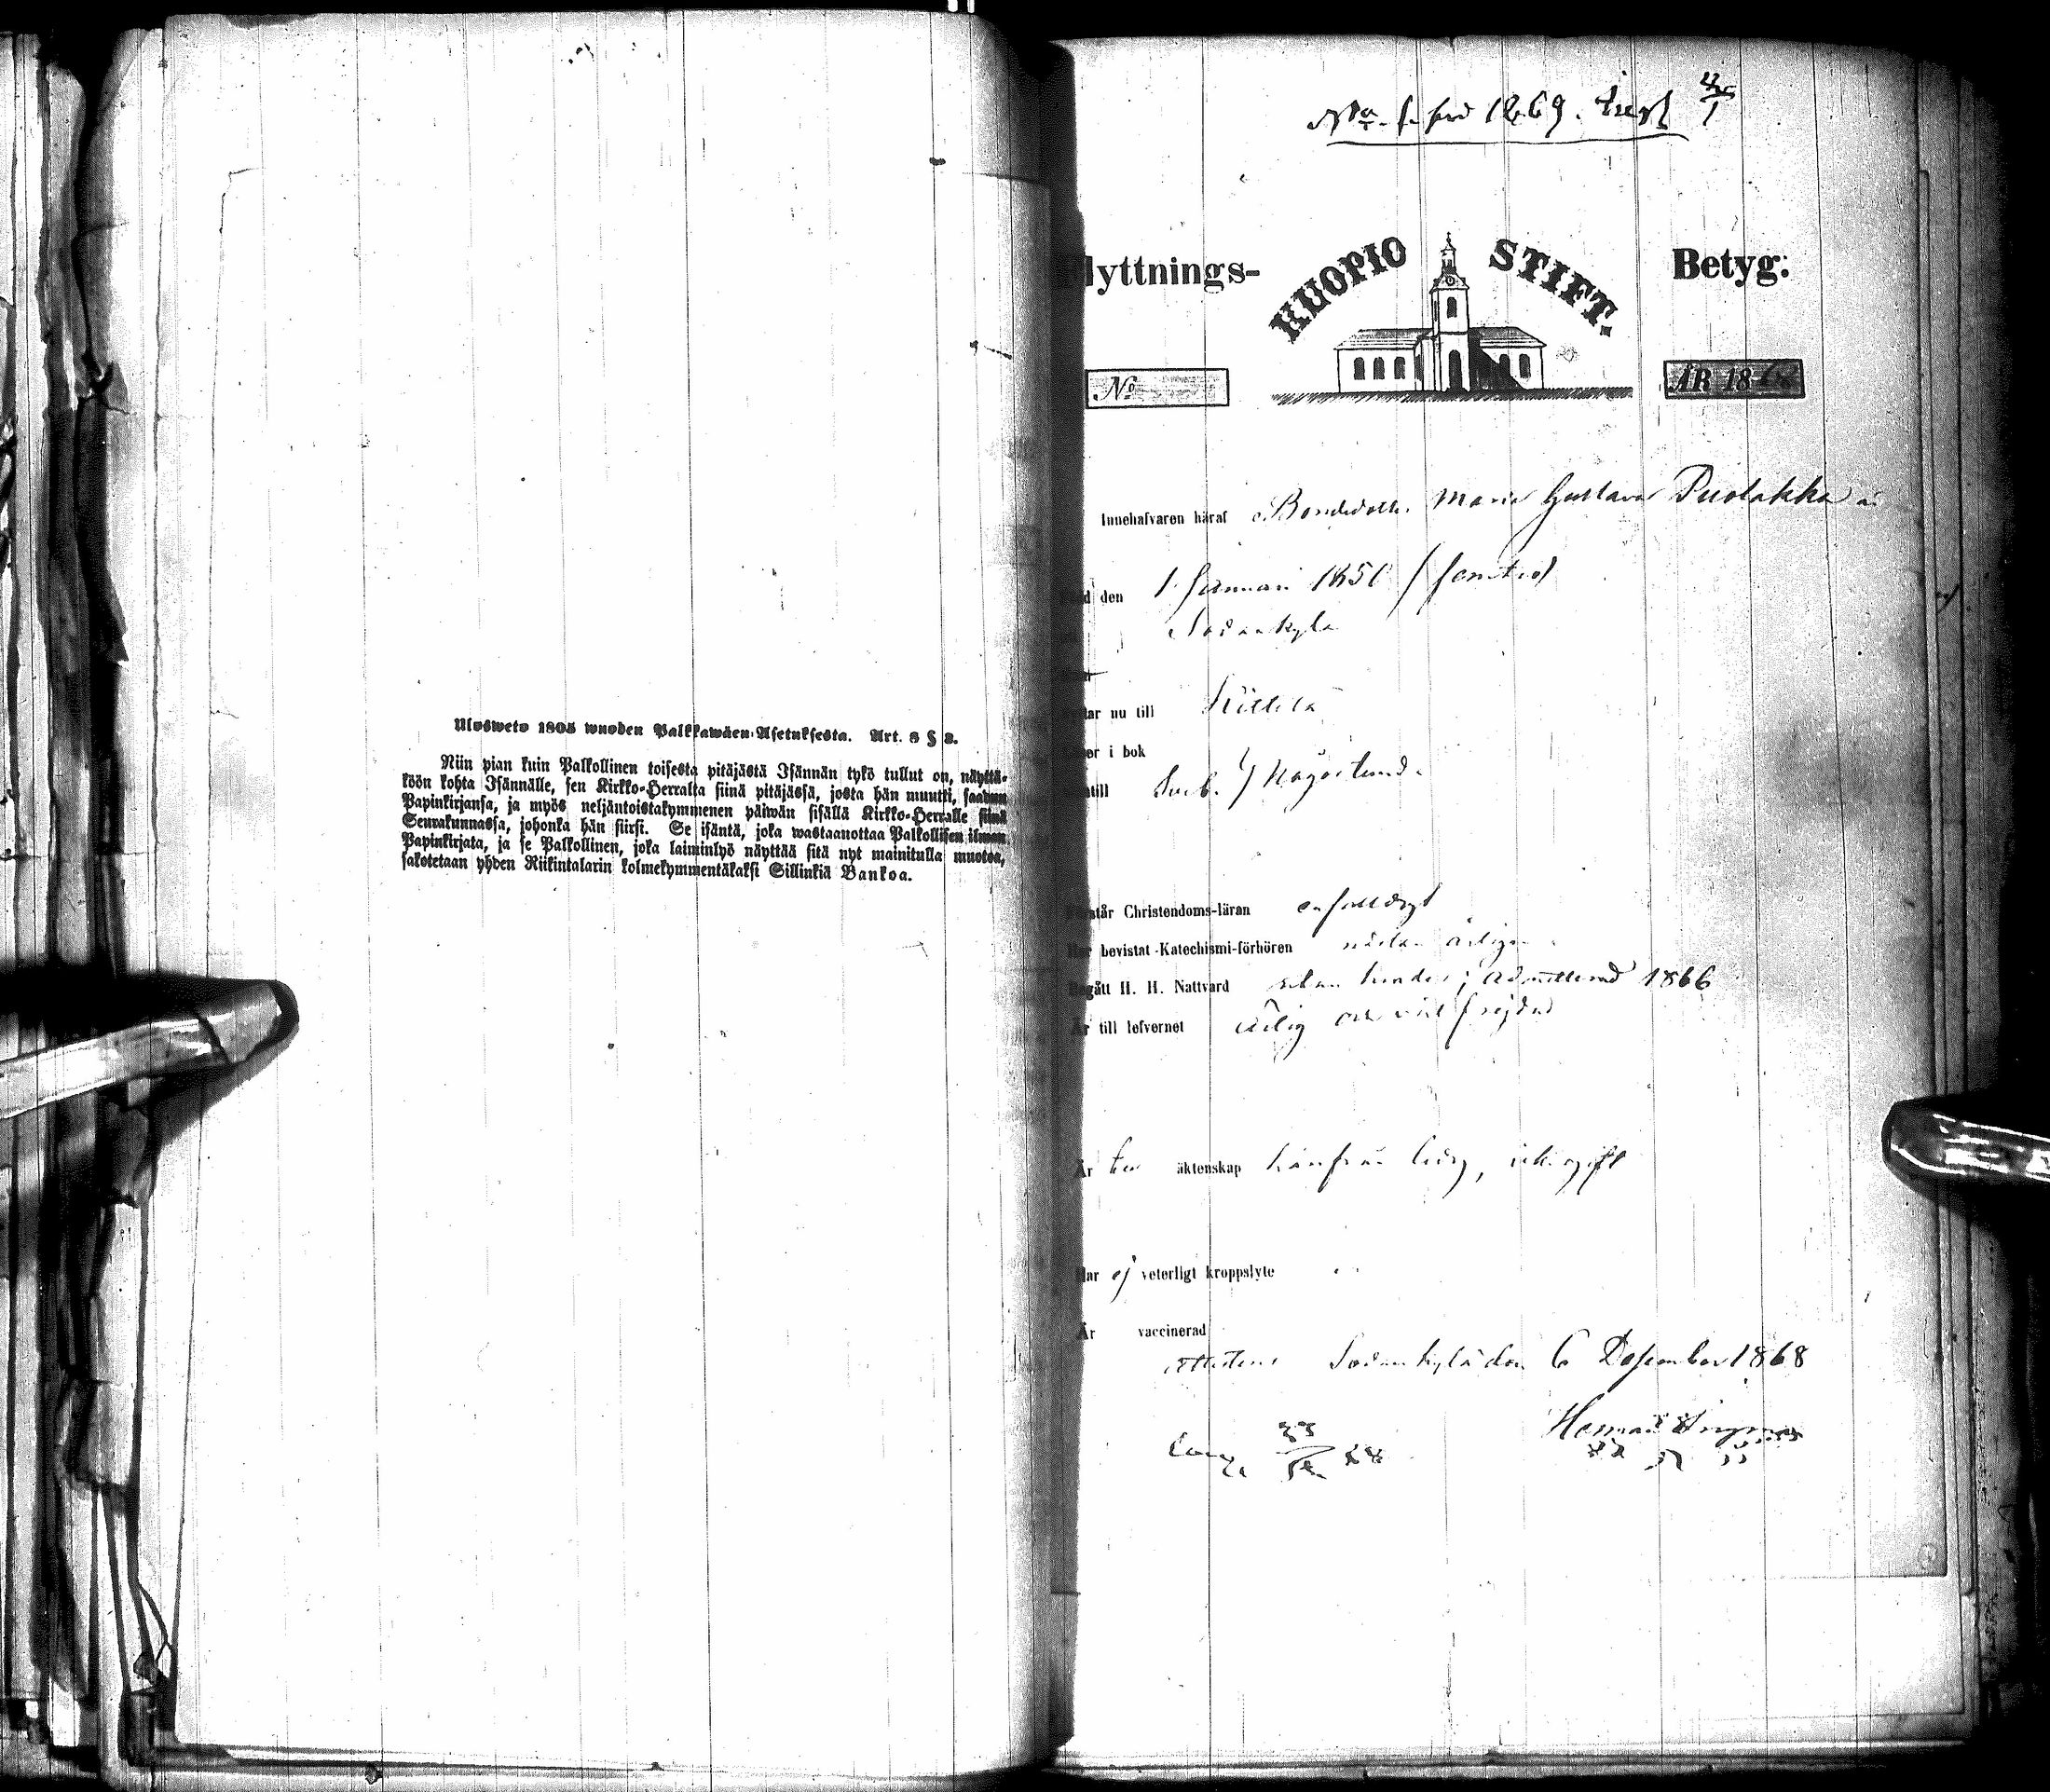 Ulosweto 1805 wuoden Palkkawäen-Asetuksesta. Art. 8 § 3.
Niin pian kuin Palkollinen toisesta pitäjästä Isännän tykö tullut on, näyttä-
köön kohta Isännälle, sen Kirkko-Herralta siinä pitäjässä, josta hän muutti, saadun
Papinkirjansa, ja myös neljäntoistakymmenen päiwän sisällä Kirkko-Herralle siinä
Seurakunnassa, johonka hän siirsi. Se isäntä, joka wastaanottaa Palkollisen ilman
Papinkirjata, ja se Palkollinen, joka laiminlyö näyttää sitä nyt mainitulla muotoa,
sakotetaan yhden Riikintalarin kolmekymmentäkaksi Sillinkiä Bankoa.
1869.
lyttnings- KUOPIO STIFT. Betyg:
No ÅR 1868
Innehafvaren häraf Bondedottr. Maria Gustava Puolakka är
den 1 Januari 1850
Sodankylä
nu till Kittilä
i bok
till
Christendoms-läran enfaldigt
bevistat Katechismi-förhören nästan årligen
Begått H. H. Nattvard admitterad 1866
Är till lefvernet ärlig och väl frejdad
Är till äktenskap härifrån ledig, ogift
Har ej veterligt kroppslyte
Är vaccinerad
attesterar Sodankylä den 6 December 1868
Herman